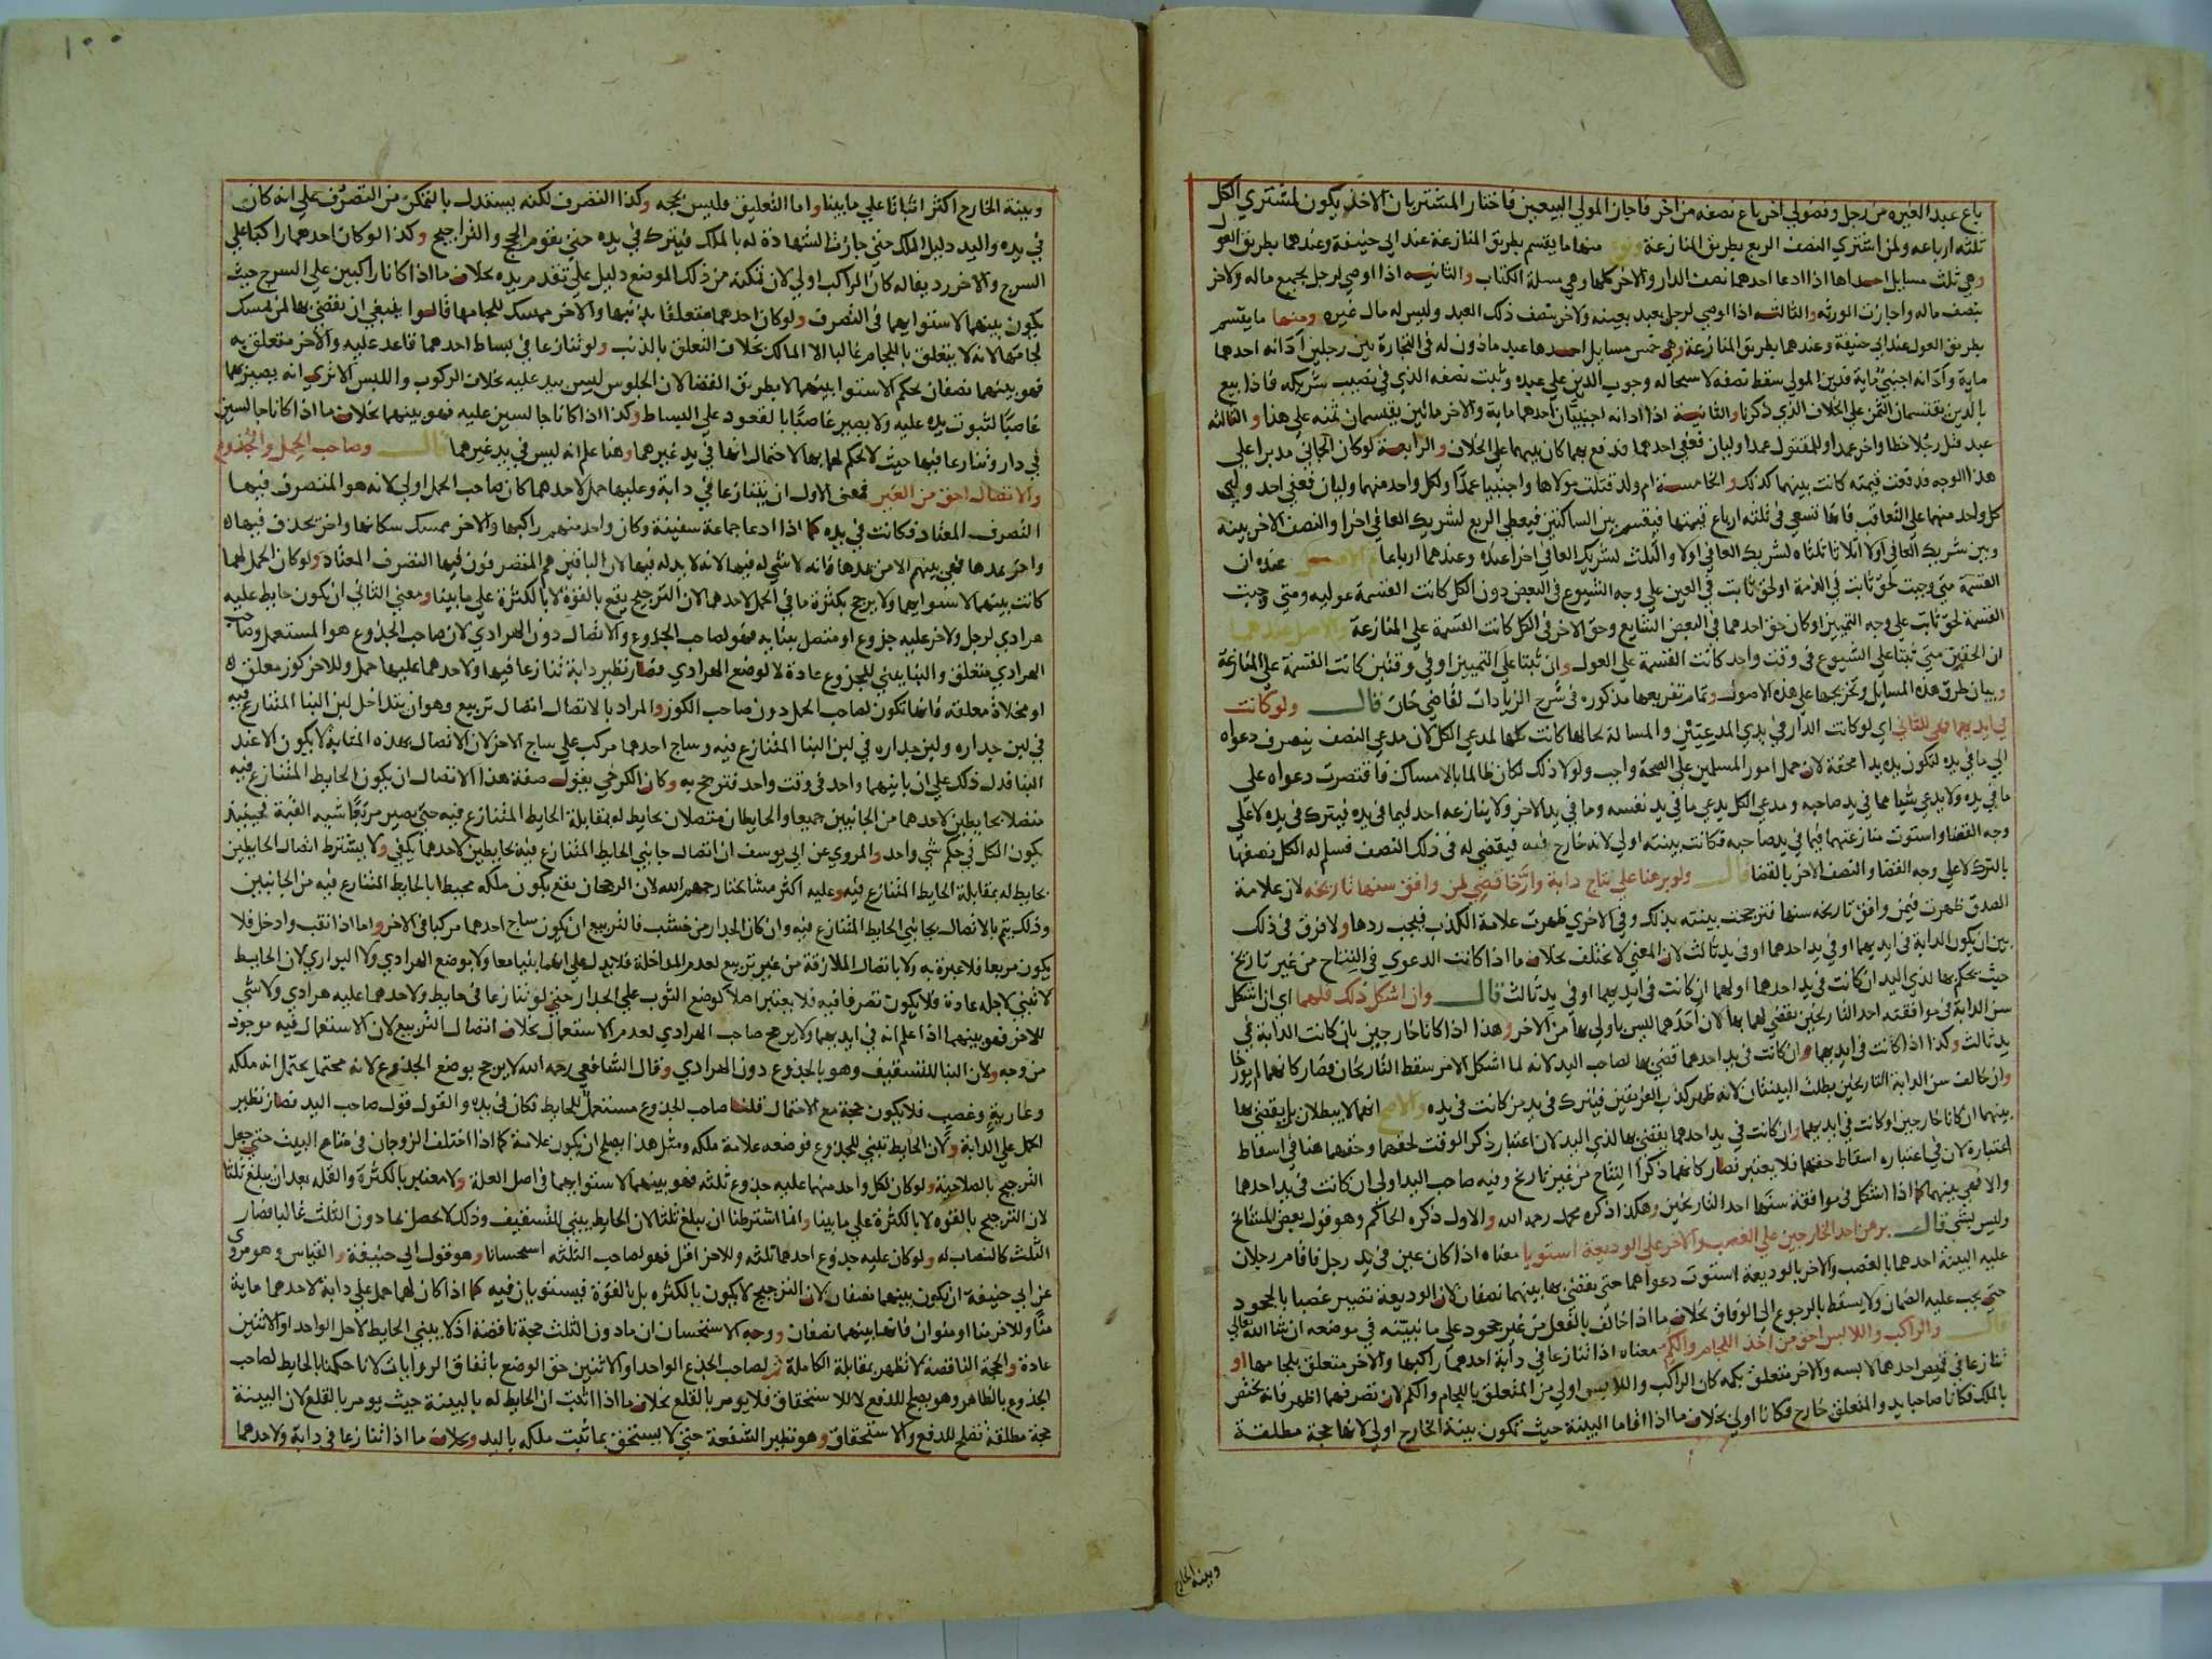 باع عبد الغيره من رجل وفضولي اخر باع نصفه من اخر فاجاز المولي البيعين فاختار المشتريان الاخذ يكون لمشتري الكل
ثلثه ارباعه ولمن اشتري النصف الربع بطريق المنازعة ونوع منها ما يقسم بطريق المنازعة عند ابي حنيفة وعندهما بطريق العول
وهي ثلث مسايل احداها اذا ادعا احدهما نصف الدار والاخر كلها وهي مسلة الكتاب والثانيه اذا اوصي لرجل بجميع ماله ولاخر
بنصف ماله واجازت الورثه والثالثه اذا اوصي لرجل بعبد بعينه ولاخر بنصف ذلك العبد وليس له مال غيره ومنها ما يقسم
بطريق العول عند ابي حنيفة وعندهما بطريق المنازعة وهي خمس مسايل احدها عبد ماذون له في التجارة بين رجلين ادانه احدهما
ماية وادانه اجنبي ماية فدين المولي سقط نصفه لاستحاله وجوب الدين علي عبده وثبت نصفه الذي في نصيب شريكه فاذا بيع
بالدين يقتسمان الثمن علي الخلاف الذي ذكرنا والثانيه اذا ادانه اجنبيان احدهما ماية والاخر مائين يقتسمان ثمنه علي هذا والثالثه
عبد قتل رجلا خطا واخر عمدا وللمقتول عمدا وليان فعفي احدهما فدفع بهما كان بينهما علي الخلاف والرابعة لو كان الجاني مدبرا علي
هذا الوجه فدفعت قيمته كانت بينهما كذلك والخامسة ام ولد قتلت مولاها واجنبيا عمدا ولكل واحد منهما وليان فعفي احد وليي
كل واحد منهما علي التعاقب فانها تسعي في ثلثه ارباع قيمتها فيقسم بين الساكتين فيعطي الربع لشريك العافي اخرا والنصف الاخر بينه
وبين شريك العافي اولا اثلاثا ثلثاه لشريك العافي اولا والثلث لشريك العافي اخرا عنده وعندهما ارباعا ثم الاصل عنده ان
القسمة متي وجبت لحق ثابت في الذمة او لحق ثابت في العين علي وجه الشيوع في البعض دون الكل كانت القسمة عوليه ومتي وجبت
القسمة لحق ثابت علي وجه التمييز او كان حق احدهما في البعض الشايع وحق الاخر في الكل كانت القسمة علي المنازعة والاصل عندهما
ان الحقين متي ثبتا علي الشيوع في وقت واحد كانت القسمة علي العول وان ثبتا علي التمييز او في وقتين كانت القسمة علي المنازعة
وبيان طرق هذه المسايل وتخريجها علي هذه الاصول وتمام تفريعها مذكوره في شرح الزيادات لقاضي خان قال ولو كانت
في ايديهما فهي للثاني اي لو كانت الدار في يدي المدعيين والمسالة بحالها كانت كلها لمدعي الكل لان مدعي النصف ينصرف دعواه
الي ما في يده لتكون يده يدا محقة لان حمل امور المسلمين علي الصحة واجب ولولا ذلك لكان ظالما بالامساك فاقتصرت دعواه علي
ما في يده ولا يدعي شيا مما في يد صاحبه ومدعي الكل يدعي ما في يد نفسه وما في يد الاخر ولا ينازعه احد فيما في يده فيترك في يده لا علي
وجه القضا واستوت منازعتهما فيما في يد صاحبه فكانت بينته اولي لانه خارج فيه فيقضي له في ذلك النصف فسلم له الكل نصفها
بالترك لا علي وجه القضا والنصف الاخر بالقضا قال ولو برهنا علي نتاج دابة وارخا قضي لمن وافق سنها تاريخه لان علامة
الصدق ظهرت فيمن وافق تاريخه سنها فترجحت بينته بذلك وفي الاخري ظهرت علامة الكذب فيجب ردها ولا فرق في ذلك
بين ان يكون الدابة في ايديهما او في يد احدهما او في يد ثالث لان المعني لا يختلف بخلاف ما اذا كانت الدعوي في النتاج من غير تاريخ
حيث يحكم بها لذي اليد ان كانت في يد احدهما او لهما ان كانت في ايديهما او في يد ثالث قال وان اشكل ذلك فلهما اي ان اشكل
سن الدابة في موافقته احد التاريخين يقضي لهما بها لان احدهما ليس باولي بها من الاخر وهذا اذا كانا خارجين بان كانت الدابة في
يد ثالث وكذا اذا كانت في ايديهما وان كانت في يد احدهما قضي بها لصاحب اليد لانه لما اشكل الامر سقط التاريخان فصار كانهما لم يورخا
وان خالف سن الدابة التاريخين بطلت البينتان لانه ظهر كذب الفريقين فيترك في يد من كانت في يده والاصح انهما لا يبطلان بل يقضي بها
بينهما ان كانا خارجين او كانت في ايديهما وان كانت في يد احدهما يقضي بها لذي اليد لان اعتبار ذكر الوقت لحقهما وحقهما هنا في اسقاط
اعتباره لان في اعتباره اسقاط حقهما فلا يعتبر فصار كانهما ذكرا النتاج من غير تاريخ وفيه صاحب اليد اولي ان كانت في يد احدهما
والا فهي بينهما كما اذا اشكل في موافقة سنها احد التاريخين وهكذا ذكره محمد رحمه الله والاول ذكره الحاكم وهو قول بعض المشائخ
وليس بشي قال برهن احد الخارجين علي الغصب والاخر علي الوديعة استويا معناه اذا كان عين في يد رجل فاقام رجلان
عليه البينة احدهما بالغصب والاخر بالوديعة استوت دعواهما حتي يقضي بها بينهما نصفان لان الوديعة تصير غصبا بالجحود
حتي يجب عليه الضمان ولا يسقط بالرجوع الي الوفاق بخلاف ما اذا خالف بالفعل من غير جحود علي ما نبينه في موضعه ان شا الله تعالي
قال والراكب واللابس احق من اخذ اللجام والكم معناه اذا تنازعا في دابة احدهما راكبها والاخر متعلق بلجامها او
تنازعا في قميص احدهما لابسه والاخر متعلق بكمه كان الراكب واللابس اولي من المتعلق باللجام والكم لان تصرفهما اظهر فانه يختص
بالملك فكانا صاحبا يد والمتعلق خارج فكانا اولي بخلاف ما اذا اقاما البينة حيث تكون بينة الخارج اولي لانها حجة مطلقة
وبينة الخارج
١٠٠
وبينة الخارج اكثر اثباتا علي ما بينا واما التعليق فليس بحجه وكذا التصرف لكنه يستدل بالتمكن من التصرف علي انه كان
في يده واليد دليل الملك حتي جازت الشهادة له بالملك فيترك في يده حتي يقوم الحجج والتراجيح وكذا لو كان احدهما راكبا علي
السرج والاخر رديفا له كان الراكب اولي لان تمكنه من ذلك الموضع دليل علي تقدم يده بخلاف ما اذا كانا راكبين علي السرج حيث
يكون بينهما لاستوايهما في التصرف ولو كان احدهما متعلقا بذنبها والاخر ممسك للجامها قالوا ينبغي ان يقضي بها لمن يمسك
لجامها لانه لا يتعلق باللجام غالبا الا المالك بخلاف التعلق بالذنب ولو تنازعا في بساط احدهما قاعد عليه والاخر متعلق به
فهو بينهما نصفان لحكم الاستوا بينهما لا بطريق القضا لان الجلوس ليس بيد عليه بخلاف الركوب واللبس الا تري انه يصير بهما
غاصبا لثبوت يده عليه ولا يصير غاصبا بالقعود علي البساط وكذا اذا كانا جالسين عليه فهو بينهما بخلاف ما اذا كانا جالسين
في دار وتنازعا فيها حيث لا يحكم لهما بها لاحتمال انها في يد غيرهما وهنا علم انه ليس في يد غيرهما قال وصاحب الحمل والجذوع
والاتصال احق من الغير فمعني الاول ان يتنازعا في دابة وعليها حمل لاحدهما كان صاحب الحمل اولي لانه هو المتصرف فيها
التصرف المعتاد فكانت في يده كما اذا ادعا جماعة سفينة وكان واحد منهم راكبها والاخر ممسك سكانها واخر يجذف فيها
واخر يمدها فهي بينهم الا من يمدها فانه لا شي له فيها لانه لا يد له فيها لان الباقين هم المتصرفون فيها التصرف المعتاد ولو كان الحمل لهما
كانت بينهما لاستوايهما ولا يرجح بكثرة ما في الحمل لاحدهما لان الترجيح يقع بالقوة لا بالكثرة علي ما بينا ومعني الثاني ان يكون حايط عليه
هرادي لرجل ولاخر عليه جذوع او متصل ببنايه فهو لصاحب الجذوع والاتصال دون الهرادي لان صاحب الجذوع هو المستعمل وصاحب
الهرادي متعلق والبنا يبني للجذوع عادة لا لوضع الهرادي فصار نظير دابة تنازعا فيها ولاحدهما عليها حمل وللاخر كوز معلق
او مخلاة معلقه فانها تكون لصاحب الحمل دون صاحب الكوز والمراد بالاتصال اتصال تربيع وهو ان يتداخل لبن البنا المتنازع فيه
في لبن جداره ولبن جداره في لبن البنا المتنازع فيه وساج احدهما مركب علي ساج الاخر لان الاتصال بهذه المثابة لا يكون الا عند
البنا فدل ذلك علي ان بانيهما واحد في وقت واحد فترجح به وكان الكرخي يقول صفة هذا الاتصال ان يكون الحايط المتنازع فيه
متصلا بحايطين لاحدهما من الجانبين جميعا والحايطان متصلان بحايط له بمقابلة الحايط المتنازع فيه حتي يصير مربعا شبه القبة فحينيذ
يكون الكل في حكم شي واحد والمروي عن ابي يوسف ان اتصال جانبي الحايط المتنازع فيه بحايطين لاحدهما يكفي ولا يشترط اتصال الحايطين
بحايط له بمقابلة الحايط المتنازع فيه وعليه اكثر مشايخنا رحمهم الله لان الرجحان يقع بكون ملكه محيطا بالحايط المتنازع فيه من الجانبين
وذلك يتم بالاتصال بجانبي الحايط المتنازع فيه وان كان الجدار من خشب فالتربيع ان يكون ساج احدهما مركبا في الاخر واما اذا نقب وادخل فلا
يكون مربعا فلا عبرة به ولا باتصال الملازقة من غير تربيع لعدم المداخلة فلا يدل علي انهما بنيا معا ولا بوضع الهرادي ولا البواري لان الحايط
لا تبني لاجله عادة فلا يكون تصرفا فيه فلا يعتبر اصلا كوضع الثوب علي الجدار حتي لو تنازعا في حايط ولاحدهما عليه هرادي ولا شي
للاخر فهو بينهما اذا علم انه في ايديهما ولا يرجح صاحب الهرادي لعدم الاستعمال بخلاف اتصال التربيع لان الاستعمال فيه موجود
من وجه ولان البنا للتسقيف وهو بالجذوع دون الهرادي وقال الشافعي رحمه الله لا يرجح بوضع الجذوع لانه محتمل يحتمل انه ملكه
وعارية وغصب فلا يكون حجة مع الاحتمال قلنا صاحب الجذوع مستعمل للحايط فكان في يده والقول قول صاحب اليد فصار نظير
الحمل علي الدابة ولان الحايط تبني للجذوع فوضعه علامة ملكه ومثل هذا يصلح ان يكون علامة كما اذا اختلف الزوجان في متاع البيت حتي جعل
الترجيح بالصلاحية ولو كان لكل واحد منهما عليه جذوع ثلثه فهو بينهما لاستوايهما في اصل العلة ولا معتبر بالكثرة والقله بعد ان يبلغ ثلثا
لان الترجيح بالقوه لا بالكثرة علي ما بينا وانما اشترطنا ان يبلغ ثلثا لان الحايط يبني للتسقيف وذلك لا يحصل بما دون الثلث غالبا فصار
الثلث كالنصاب له ولو كان عليه جذوع احدهما ثلثه وللاخر اقل فهو لصاحب الثلثه استحسانا وهو قول ابي حنيفة والقياس وهو مروي
عن ابي حنيفة ان يكون بينهما نصفان لان الترجيح لا يكون بالكثره بل بالقوة فيستويان فيه كما اذا كان لهما حمل علي دابة لاحدهما ماية
منا وللاخر منا او منوان فانها بينهما نصفان ووجه الاستحسان ان ما دون الثلث حجة ناقصة اذ لا يبني الحايط لاجل الواحد او الاثنين
عادة والحجة الناقصة لا تظهر بمقابلة الكاملة ثم لصاحب الجذع الواحد او الاثنين حق الوضع باتفاق الروايات لانا حكمنا بالحايط لصاحب
الجذوع بالظاهر وهو يصلح للدفع لا للاستحقاق فلا يومر بالقلع بخلاف ما اذا اثبت ان الحايط له بالبينة حيث يومر بالقلع لان البينة
حجة مطلقة تصلح للدفع والاستحقاق وهو نظير الشفعة حتي لا يستحق بما ثبت ملكه باليد وبخلاف ما اذا تنازعا في دابة ولاحدهما